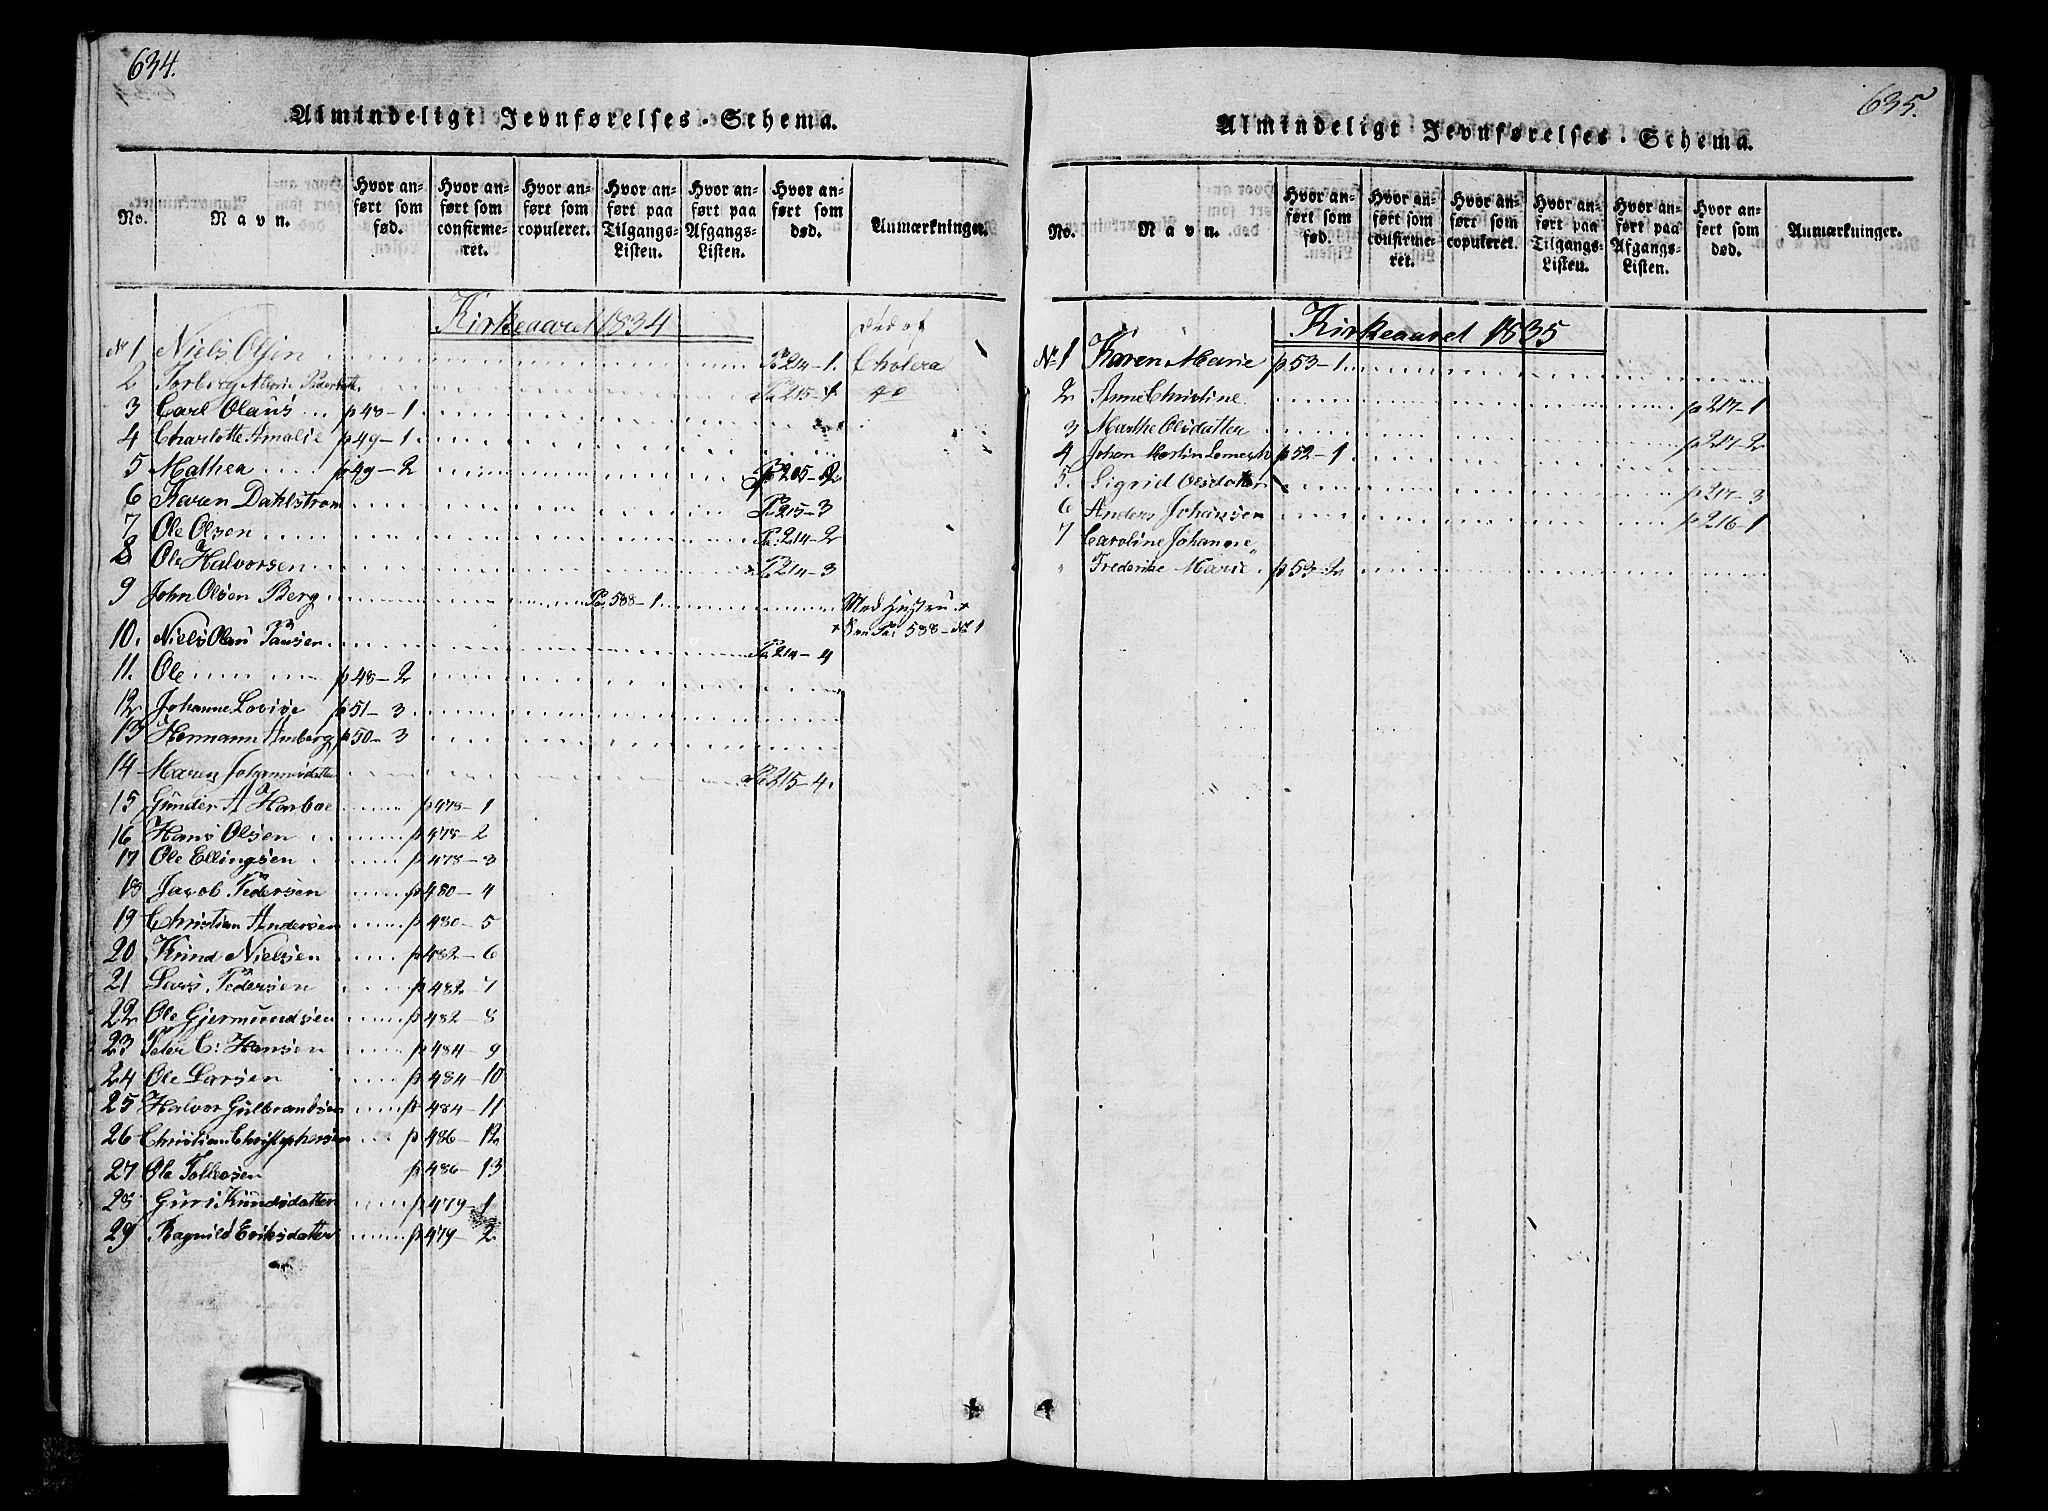 634.
Almindeligt Jevnførelses-Schema.
No. Navn. Hvor anført som fød. Hvor anført som confirmeret. Hvor anført som copuleret. Hvor anført paa Tilgangs-Listen. Hvor anført paa Afgangs-Listen. Hvor anført som død. Anmærkninger.
Kirkeaaret 1834
No 1 Niels Olsen Pa 214-1. død af Cholera
2 Torborg Marie Pa 215-1 do
3 Carl Olaus p 48-1
4 Charlotte Amalie p 49-1
5 Mathea p 49-2 Pa 205-12
6 Karen Dahlstrøm Pa 215-3
7 Ole Olsen Pa: 214-2
8 Ole Halvorsen Pa 214-3
9 John Olsen Berg Pa: 588-1 Med Hustru +
+ Pa: 588-No 1
10. Niels Olaus Paa 214-4
11. Ole p 48-2
12 Johanne Lovise p 51-3
13 Hermann Amberg p 50-3
14 Maren Johannesdatter Pa 215-4.
15 Gunder A Harboe p 478-1
16 Hans Olsen p 478-2
17 Ole Ellingsen p 478-3
18 Jacob Pedersen p 480-4
19 Christian Andersen p 480-5
20 Knud Nielsen p 482-6
21 Lars Pedersen p 482 7
22 Ole Gjermundsen p 482-8
23 Peter C: Hansen p 484-9
24 Ole Larsen p 484-10
25 Halvor Gulbrandsen p 484-11
26 Christian Christophersen p 486-12
27 Ole Tollevsen p 486-13
28 Guri Knudsdatter p 479-1
29 Ragnild Eriksdatter p 479-2
635.
Almindeligt Jevnførelses-Schema.
No. Navn. Hvor anført som fød. Hvor anført som confirmeret. Hvor anført som copuleret. Hvor anført paa Tilgangs-Listen. Hvor anført paa Afgangs-Listen. Hvor anført som død. Anmærkninger.
Kirkeaaret 1835
No 1 Karen Marie p 53-1
2 Anne Christine pa 217-1
3 Marthe Olsdatter pa 217-2
4 Johan Martin p 52-1
5. Sigrid Olsdatter pa 217-3
6 Anders Johansen pa 216-1
7 Caroline Johanne
" Frederike Marie p 53-2